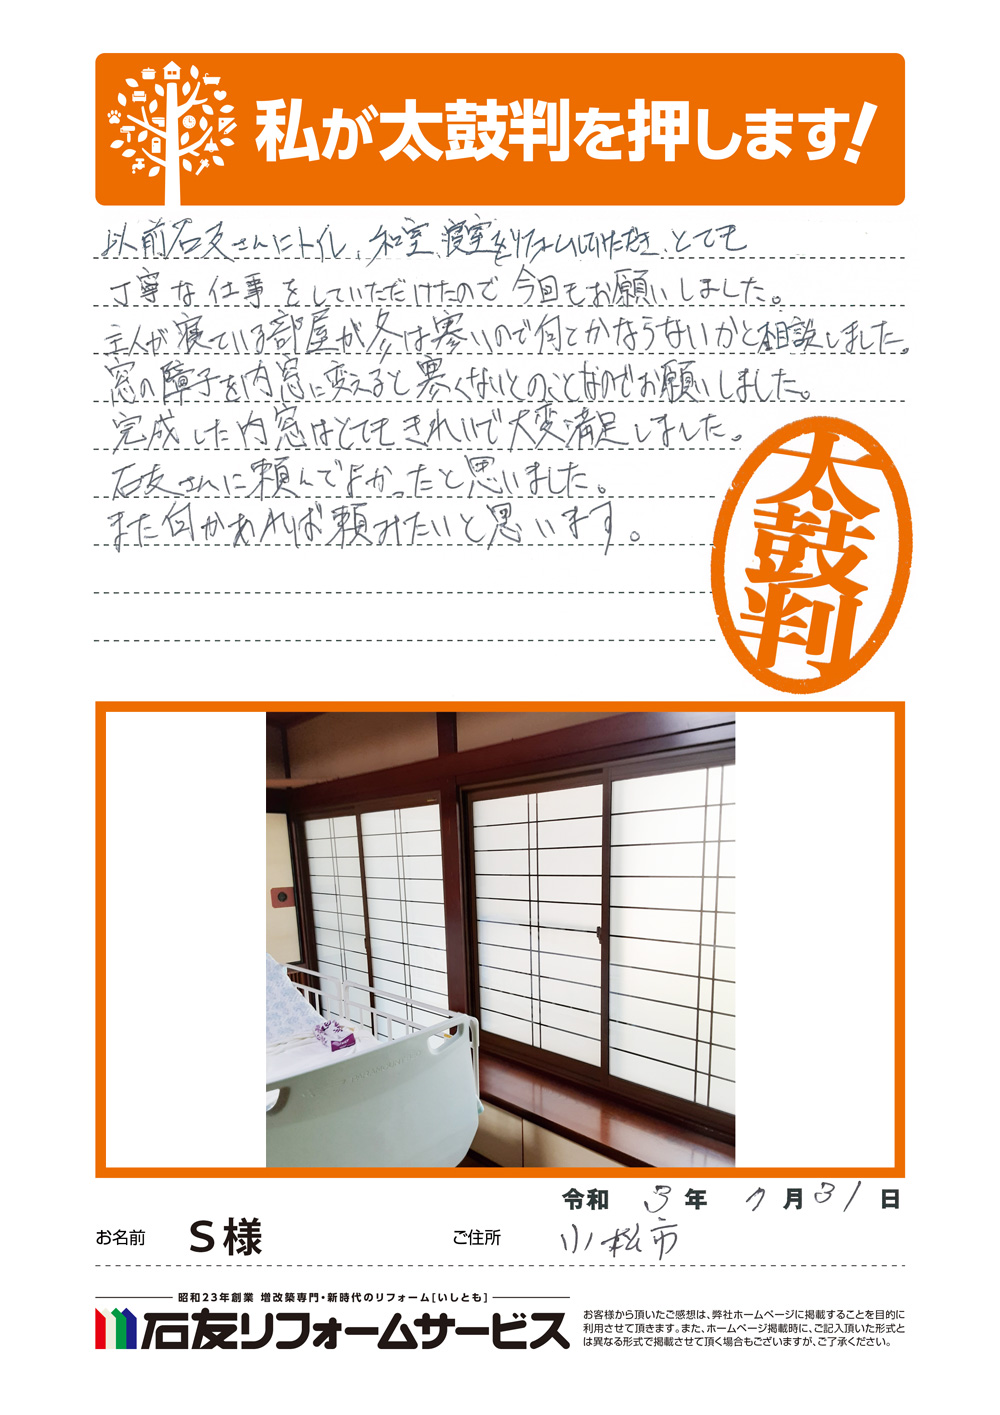 私が太鼓判を押します!
以前石友さんにトイレ、和室、寝室をリフォームしていただき、とても
丁寧な仕事をしていただけたので今回もお願いしました。
主人が寝ている部屋が冬は寒いので何とかならないかと相談しました。
窓の障子を内窓に変えると寒くないとのことなのでお願いしました。
完成した内窓はとてもきれいで大変満足しました。
石友さんに頼んでよかったと思いました。
また何かあれば頼みたいと思います。
太鼓判
令和 3年 7月31日
お名前 S様 ご住所 小松市
昭和23年創業 増改築専門・新時代のリフォーム[いしとも]
石友リフォームサービス
お客様から頂いたご感想は、弊社ホームページに掲載することを目的に
利用させて頂きます。また、ホームページ掲載時に、ご記入頂いた形式と
は異なる形式で掲載させて頂く場合もございますが、ご了承ください。